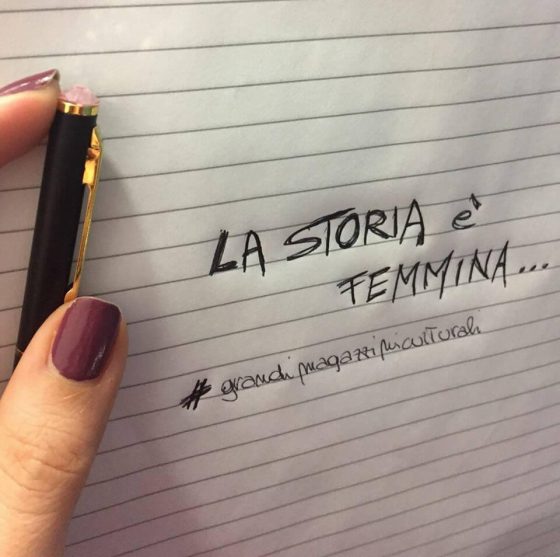 LA STORIA è
FEMMINA...
#grandimagazziniculturali